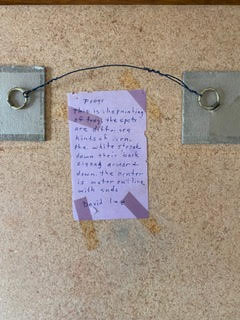 Frogs
This is the painting
of frogs the spots
are different
kinds of corn.
the white streak
down their back
zigzag around
down. the center
is water
with ends
David